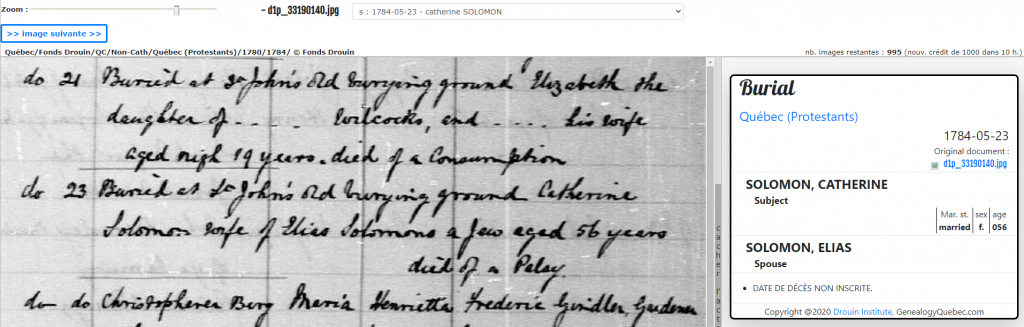 Zoom :
– d1p_33190140.jpg
s : 1784-05-23 - catherine SOLOMON
>> image suivante >>
Québec/Fonds Drouin/QC/Non-Cath/Québec (Protestants)/1780/1784/ © Fonds Drouin
nb. images restantes : 995 (nouv. crédit de 1000 dans 10 h.)
do 21 Buried at St John's Old burying ground Elizabeth the
daughter of - . . . Wilcocks, and - . . . his wife
aged nigh 19 years. died of a Consumption
do 23 Buried at St John's Old burying ground Catherine
Solomon wife of Elias Solomons a Jew aged 56 years
died of a Palsy.
do do Maria Henrietta Frederic
Burial
Québec (Protestants)
1784-05-23
Original document :
d1p_33190140.jpg
SOLOMON, CATHERINE
Subject
Mar. st. sex age
married f. 056
SOLOMON, ELIAS
Spouse
• DATE DE DÉCÈS NON INSCRITE.
Copyright @2020 Drouin Institute, GenealogyQuebec.com